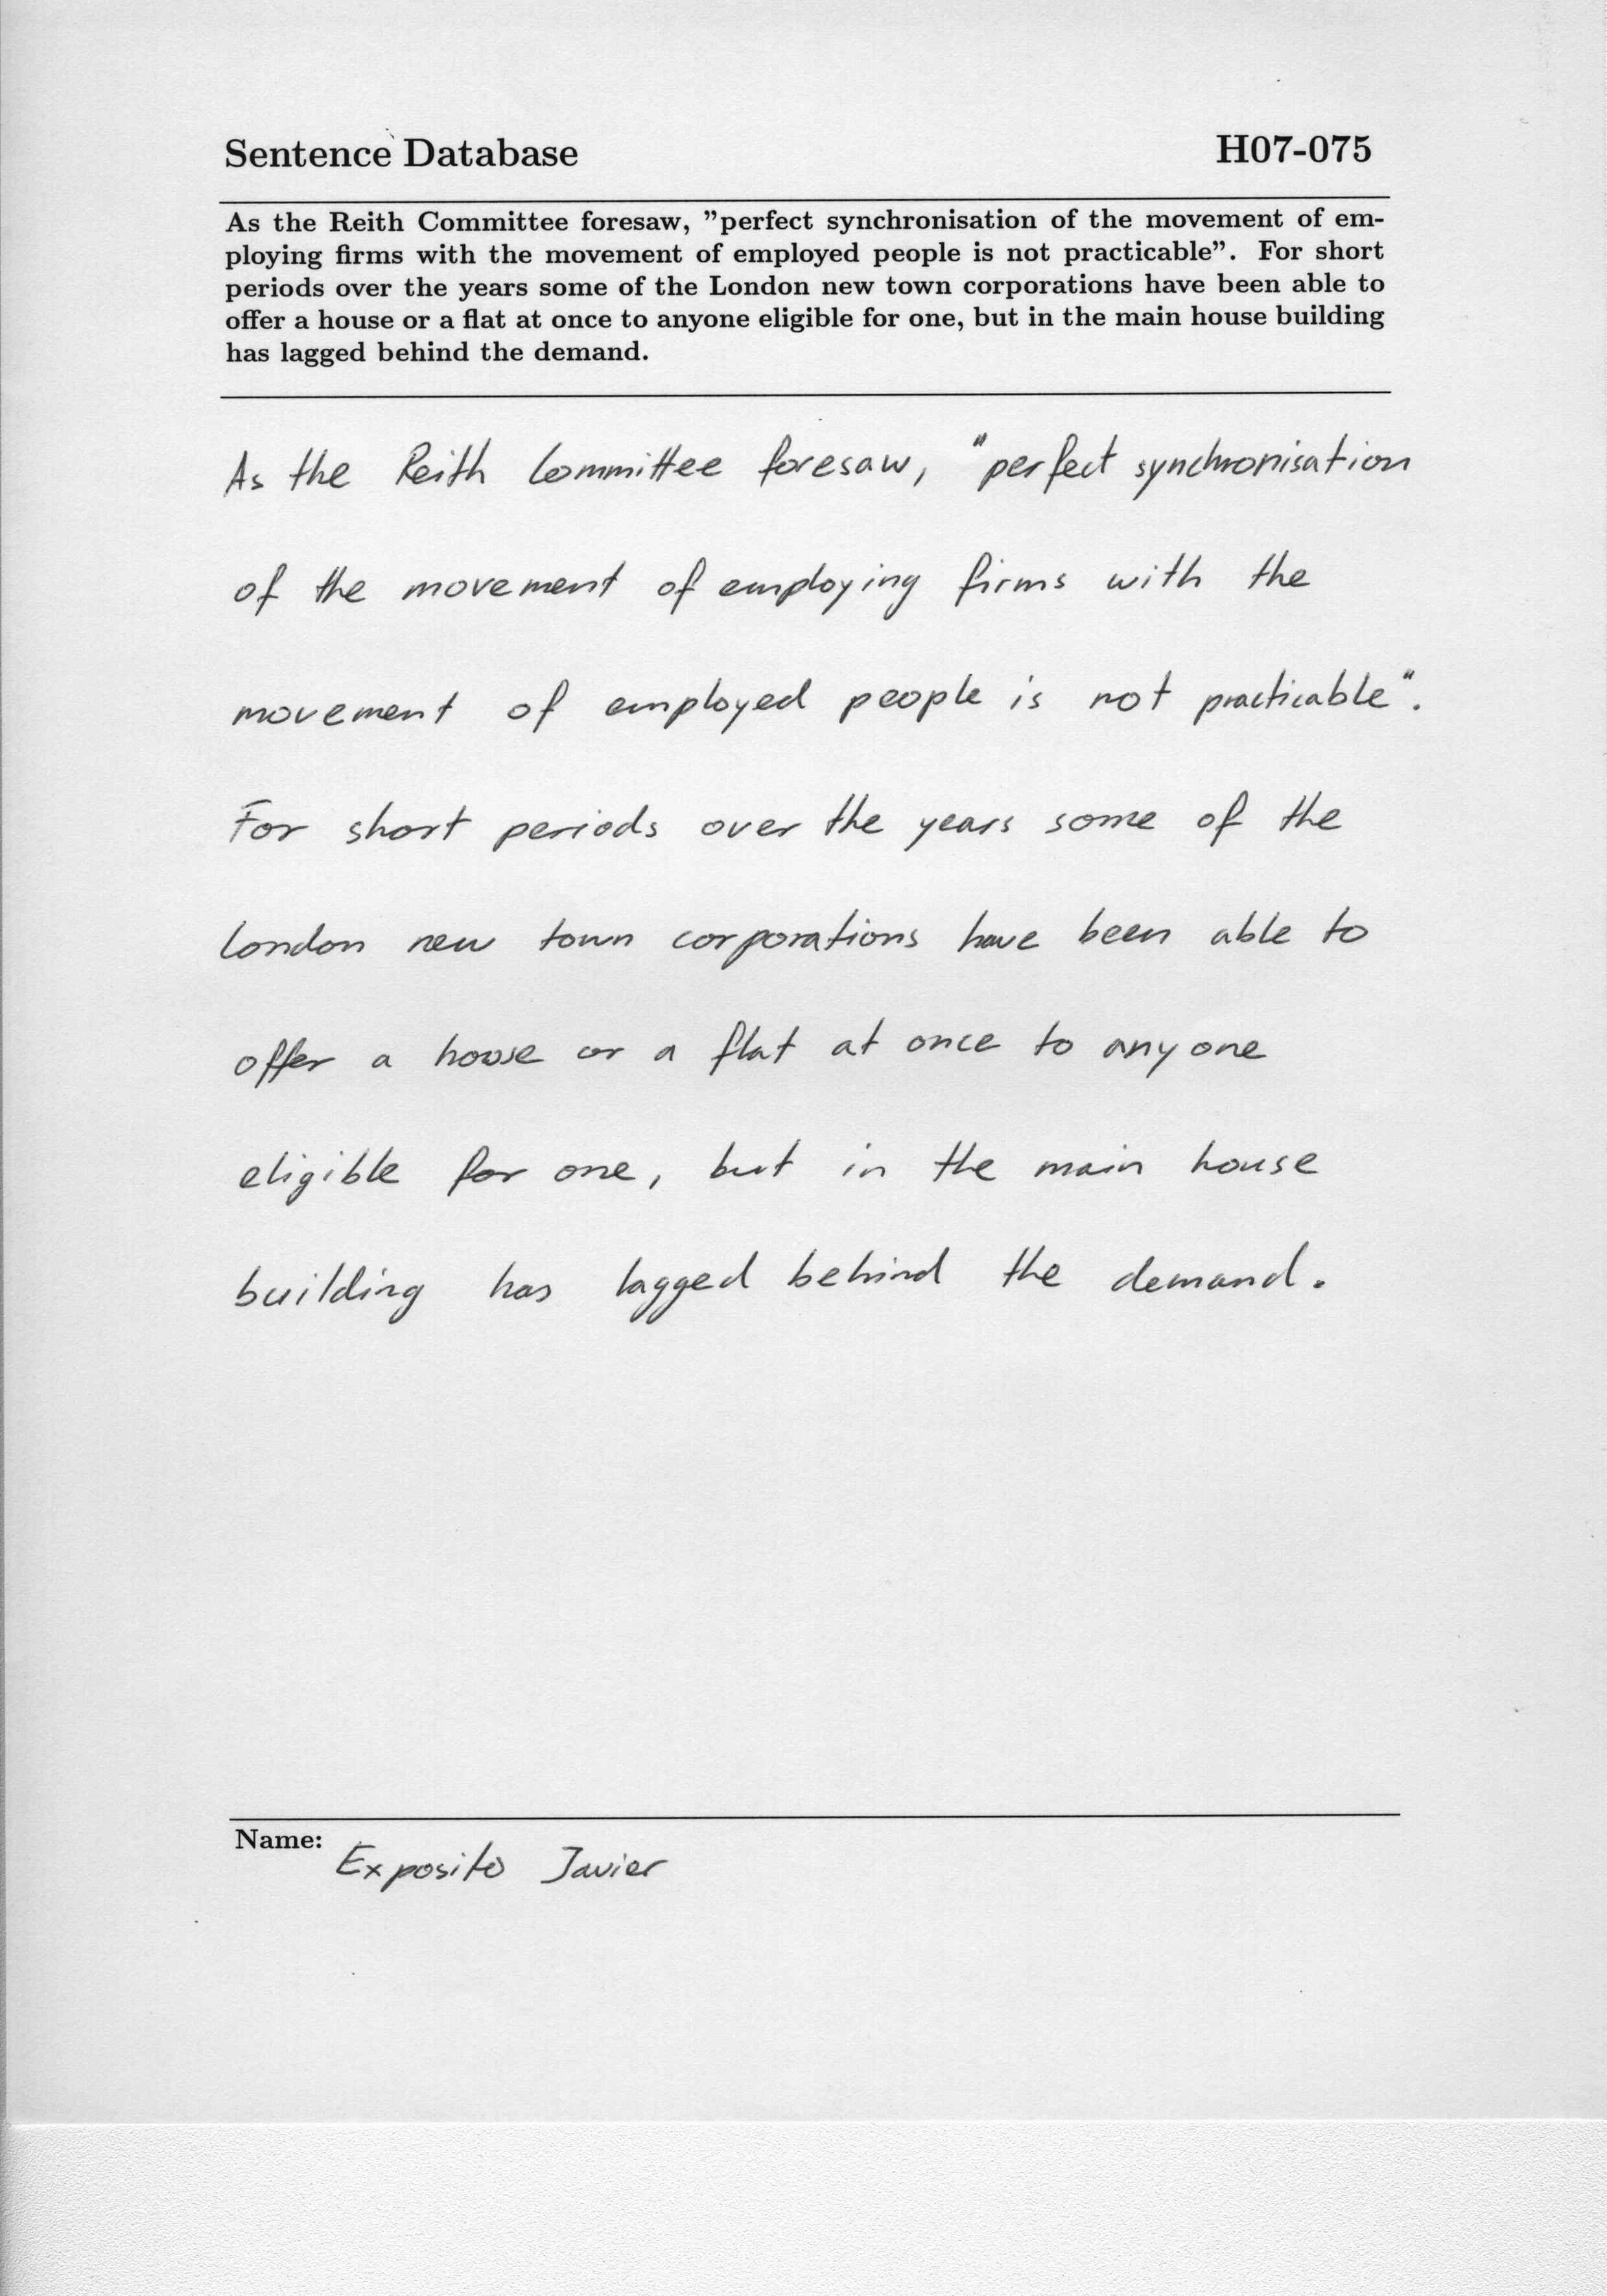 Sentence Database H07-075
As the Reith Committee foresaw, ”perfect synchronisation of the movement of em-
ploying firms with the movement of employed people is not practicable”. For short
periods over the years some of the London new town corporations have been able to
offer a house or a flat at once to anyone eligible for one, but in the main house building
has lagged behind the demand.
As the Reith Committee foresaw, "perfect synchronisation
of the movement of employing firms with the
movement of employed people is not practicable".
For short periods over the years some of the
London new town corporations have been able to
offer a house or a flat at once to anyone
eligible for one, but in the main house
building has lagged behind the demand.
Name: Exposito Javier